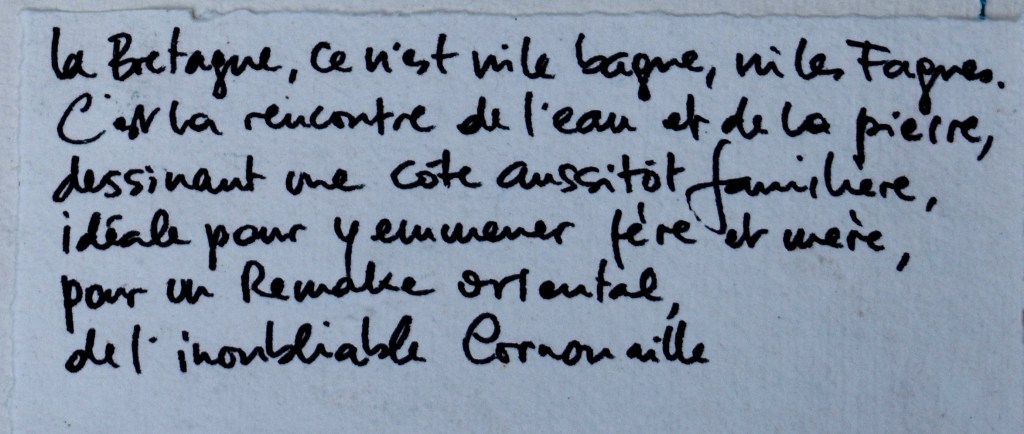 la Bretagne, ce n'est ni le bagne, ni les Fagnes.
C'est la rencontre de l'eau et de la pierre,
dessinant une côte aussitôt familière,
idéale pour y emmener père et mère,
pour un Remake oriental,
de l'inoubliable Cornouaille